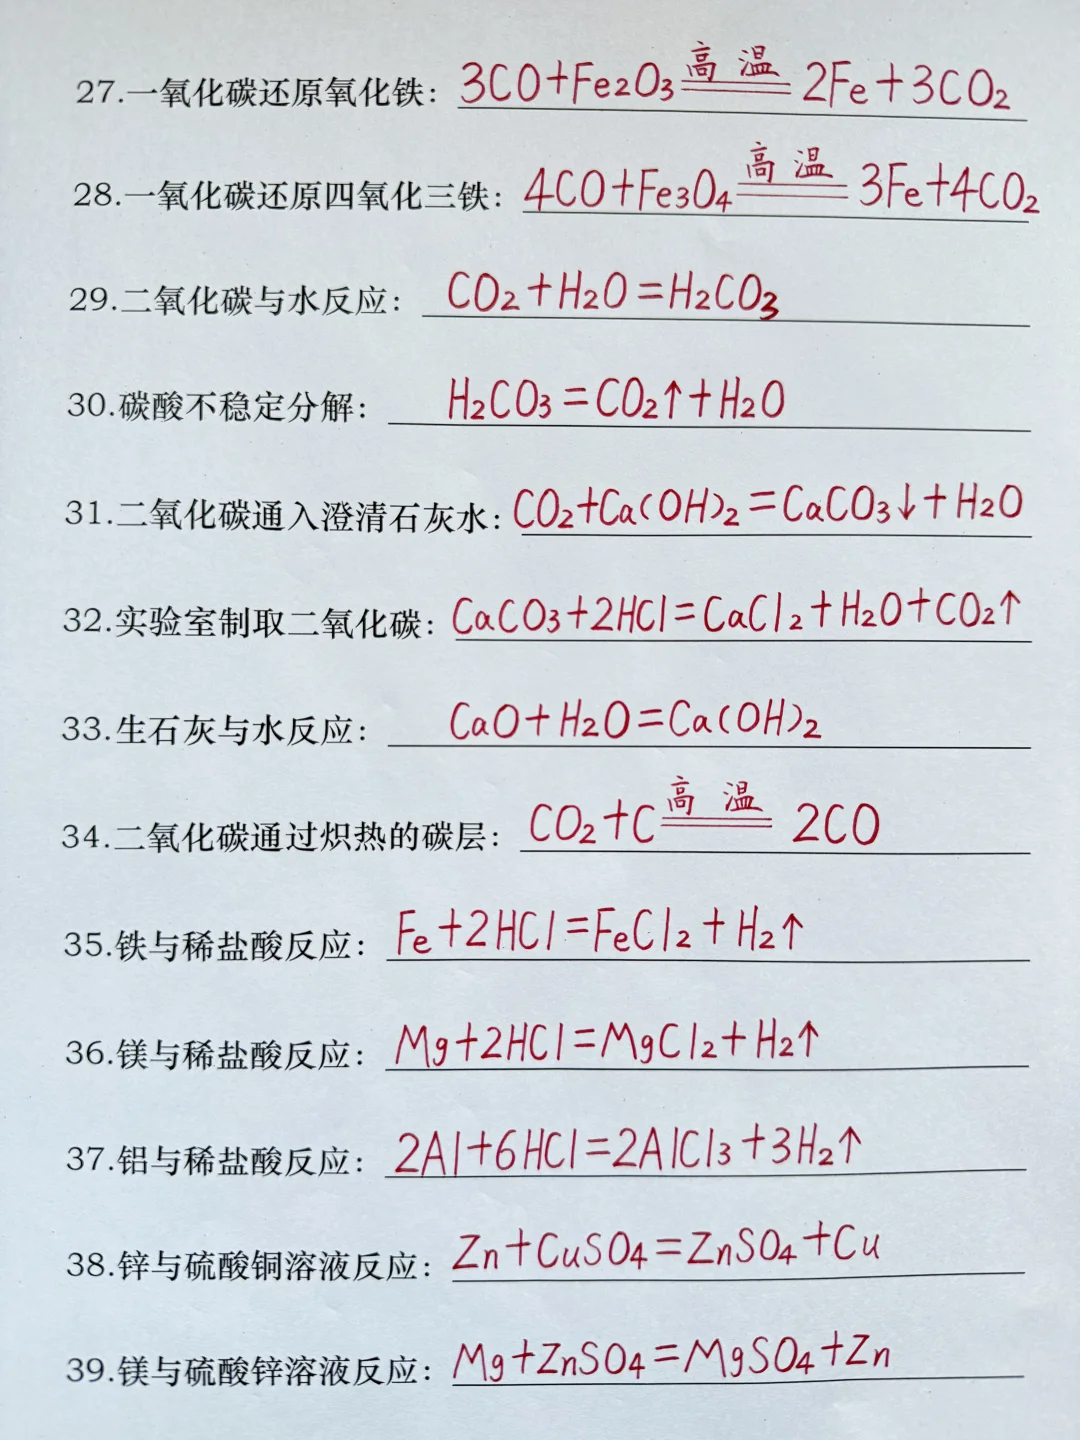 27.一氧化碳还原氧化铁: 3CO+Fe₂O₃ 高温══ 2Fe+3CO₂
28.一氧化碳还原四氧化三铁: 4CO+Fe₃O₄ 高温══ 3Fe+4CO₂
29.二氧化碳与水反应: CO₂+H₂O=H₂CO₃
30.碳酸不稳定分解: H₂CO₃=CO₂↑+H₂O
31.二氧化碳通入澄清石灰水: CO₂+Ca(OH)₂=CaCO₃↓+H₂O
32.实验室制取二氧化碳: CaCO₃+2HCl=CaCl₂+H₂O+CO₂↑
33.生石灰与水反应: CaO+H₂O=Ca(OH)₂
34.二氧化碳通过炽热的碳层: CO₂+C 高温══ 2CO
35.铁与稀盐酸反应: Fe+2HCl=FeCl₂+H₂↑
36.镁与稀盐酸反应: Mg+2HCl=MgCl₂+H₂↑
37.铝与稀盐酸反应: 2Al+6HCl=2AlCl₃+3H₂↑
38.锌与硫酸铜溶液反应: Zn+CuSO₄=ZnSO₄+Cu
39.镁与硫酸锌溶液反应: Mg+ZnSO₄=MgSO₄+Zn